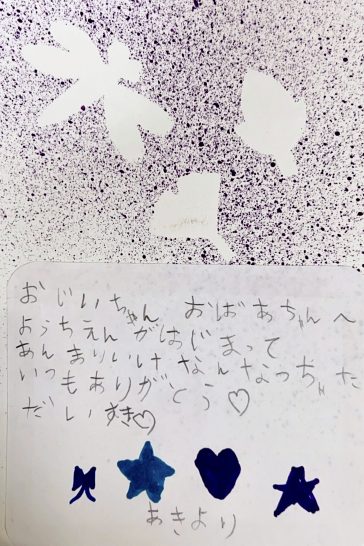 おじいちゃん おばあちゃんへ
ようちえんがはじまって
あんまりいけなんなっちゃた
いつもありがとう♡
だいすき♡
あきより